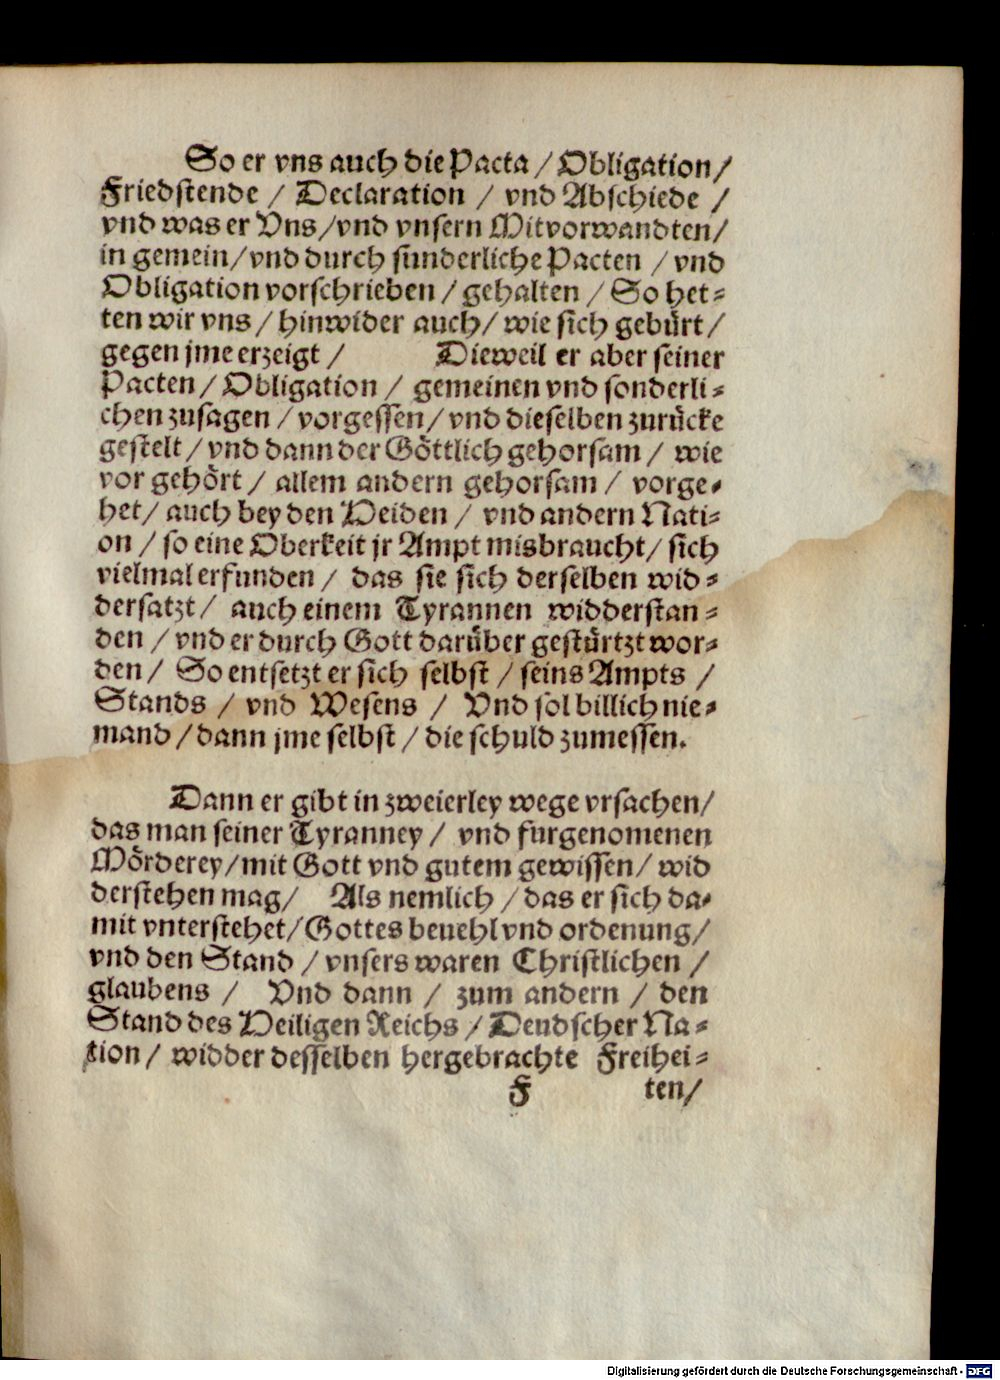 So er vns auch die Pacta / Obligation /
Friedstende / Declaration / vnd Abschiede /
vnd was er Vns /vnd vnsern Mitvorwandten/
in gemein/vnd durch sunderliche Pacten / vnd
Obligation vorschrieben / gehalten / So het-
ten wir vns / hinwider auch/ wie sich gebürt/
gegen jme erzeigt / Dieweil er aber seiner
Pacten / Obligation / gemeinen vnd sonderli-
chen zusagen / vorgessen/ vnd dieselben zurücke
gestelt / vnd dann der Göttlich gehorsam / wie
vor gehört / allem andern gehorsam / vorge-
het/ auch bey den Heiden / vnd andern Nati-
on / so eine Oberkeit jr Ampt misbraucht/ sich
vielmal erfunden / das sie sich derselben wid-
dersatzt / auch einem Tyrannen widderstan-
den / vnd er durch Gott darüber gestürtzt wor-
den / So entsetzt er sich selbst / seins Ampts /
Stands / vnd Wesens / Vnd sol billich nie-
mand / dann jme selbst / die schuld zumessen.
Dann er gibt in zweierley wege vrsachen/
das man seiner Tyranney / vnd furgenomenen
Mörderey/mit Gott vnd gutem gewissen/ wid
derstehen mag/ Als nemlich / das er sich da-
mit vnterstehet/Gottes beuehl vnd ordenung/
vnd den Stand / vnsers waren Christlichen /
glaubens / Vnd dann / zum andern / den
Stand des Heiligen Reichs / Deudscher Na-
tion / widder desselben hergebrachte Freihei-
F ten/
Digitalisierung gefördert durch die Deutsche Forschungsgemeinschaft - DFG